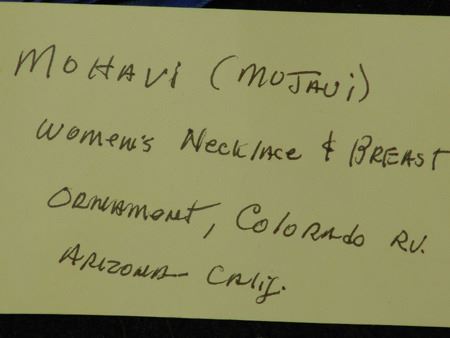 MOHAVi (MOJAVi)
WOMEN'S NECKLACE & BREAST
ORNAMONT, COLORADO RV.
ARIZONA CALIF.